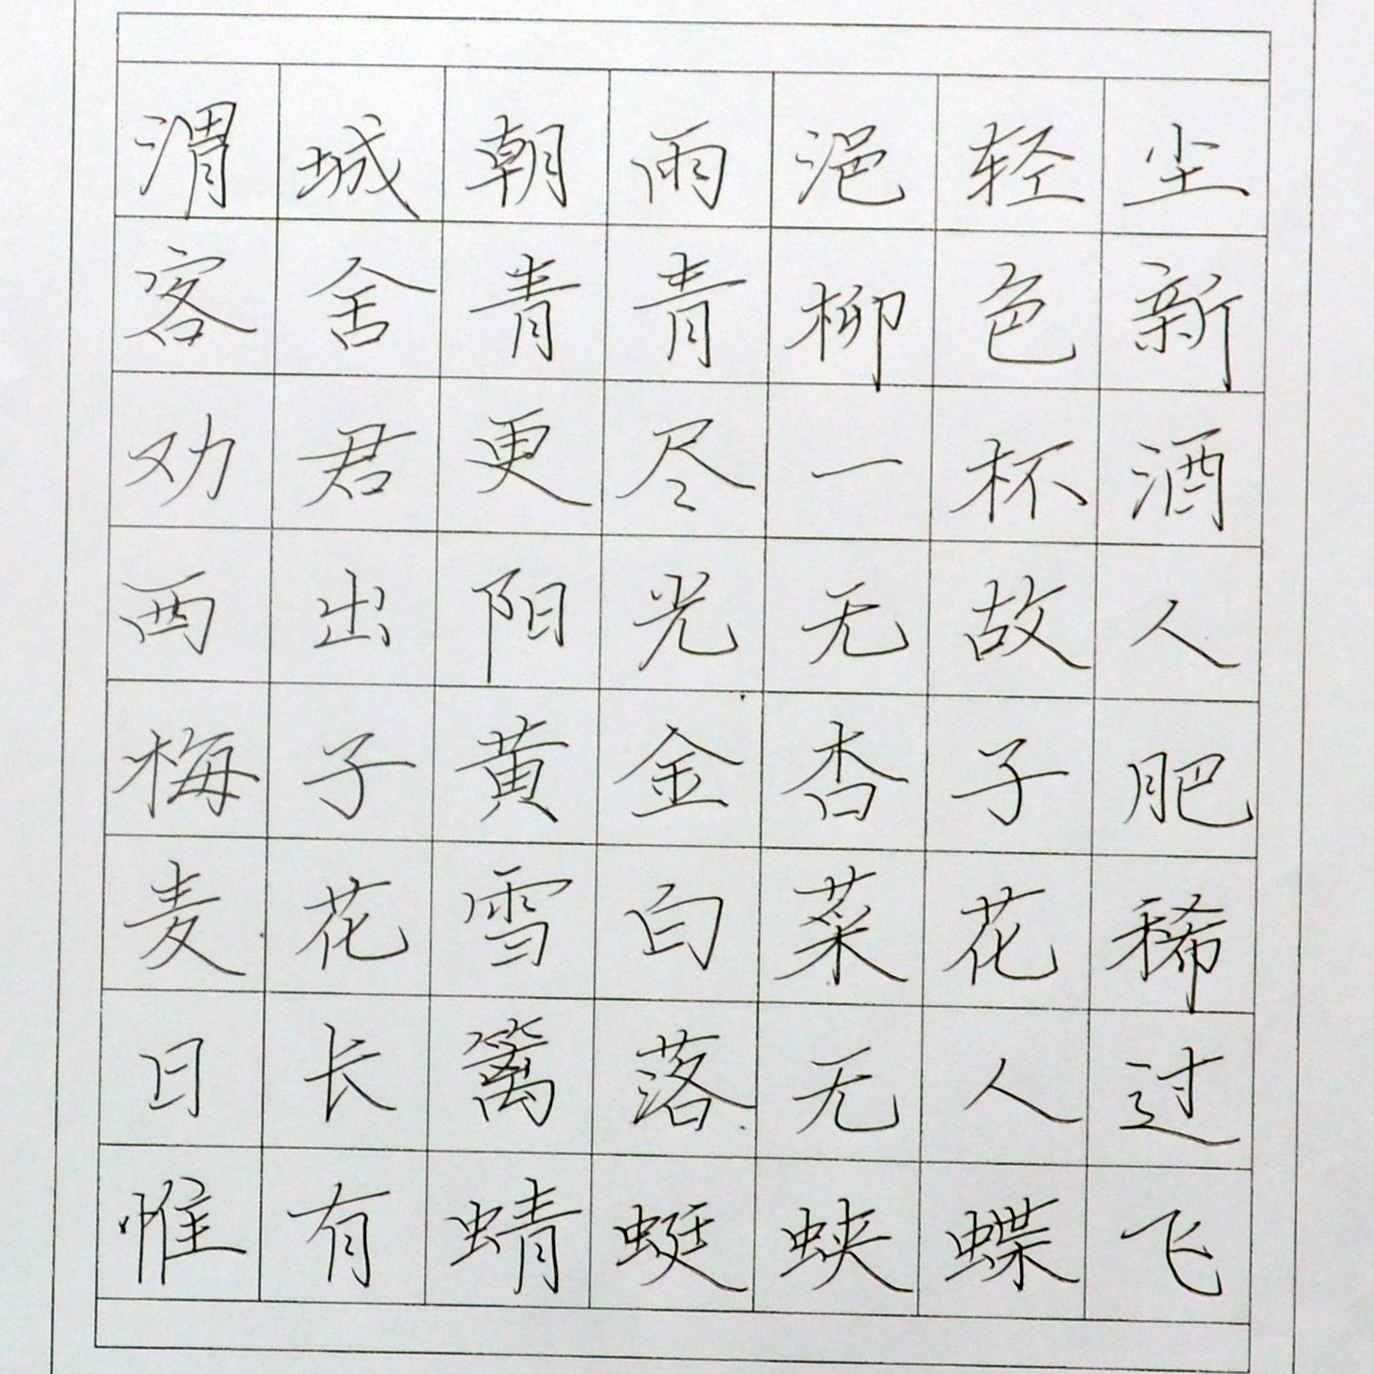 渭城朝雨浥轻尘
客舍青青柳色新
劝君更尽一杯酒
西出阳光无故人
梅子黄金杏子肥
麦花雪白菜花稀
日长篱落无人过
惟有蜻蜓蛱蝶飞